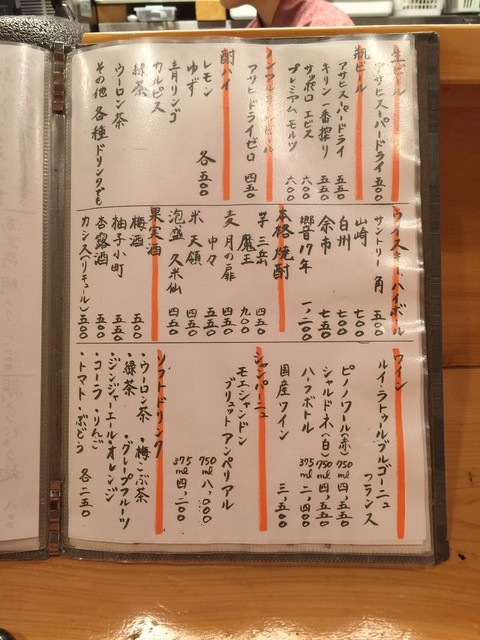 生ビール
アサヒスーパードライ 五〇〇
瓶ビール
アサヒスーパードライ 五五〇
キリン一番搾り 五五〇
サッポロエビス 六〇〇
プレミアムモルツ 六〇〇
ノンアルコールビール
アサヒドライゼロ 四五〇
酎ハイ
レモン
ゆず 各五〇〇
青リンゴ
カルピス
緑茶
ウーロン茶
その他 各種ドリンクでも
ウイスキー、ハイボール
サントリー 角 五〇〇
山崎 七〇〇
白州 七〇〇
余市 七五〇
響17年 一、二〇〇
本格焼酎
芋 三岳 四五〇
魔王 九〇〇
麦 月の扉 四五〇
中々 五五〇
米 天領 四五〇
泡盛 久米仙 四五〇
果実酒
梅酒 五五〇
柚子小町 五五〇
杏露酒 五〇〇
カシス(リキュール) 五〇〇
ワイン
ルイ・ラトゥールブルゴーニュ
フランス
ピノノワール(赤) 750ml 四、五五〇
シャルドネ(白) 750ml 四、五五〇
ハーフボトル 375ml 二、四〇〇
国産ワイン 三、五〇〇
シャンパーニュ
モエシャンドン
ブリュットアンペリアル
750ml 八、〇〇〇
375ml 四、二〇〇
ソフトドリンク
・ウーロン茶 ・梅こぶ茶
・緑茶 ・グレープフルーツ
・ジンジャーエール・オレンジ
・コーラ ・りんご
・トマト ・ぶどう 各二五〇